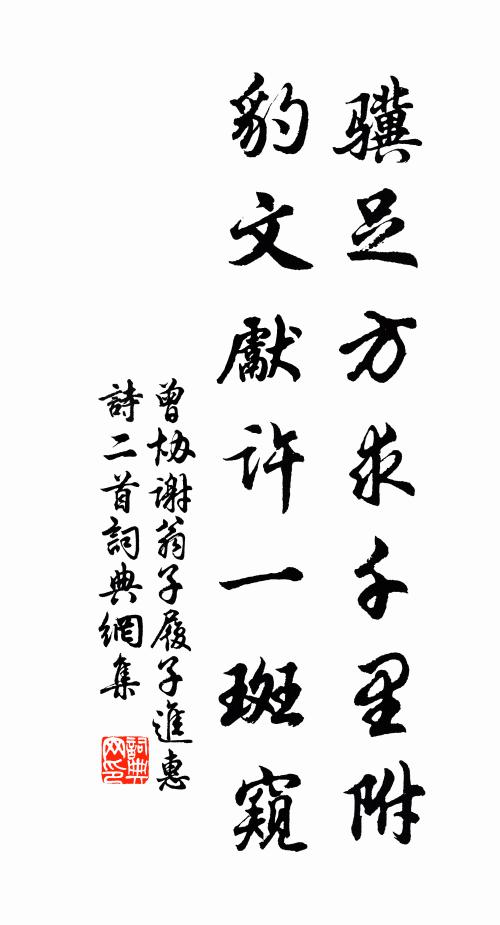 驥足方求千里附
豹文獻許一斑窺
曾协谢翁子履子進惠
詩二首詞典網集
詞典
网印